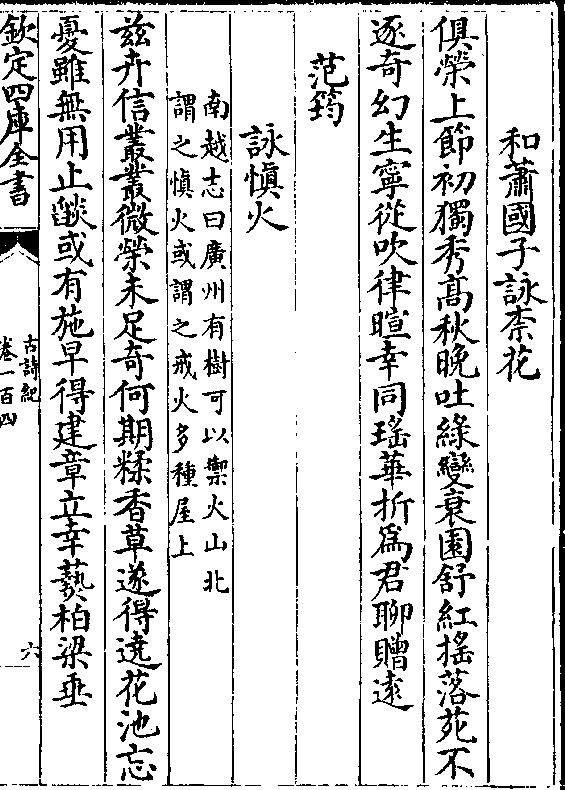 和蕭國子詠柰花
俱榮上節初獨秀髙秋晚吐綠變衰園舒紅搖落苑不
逐奇幻生寧從吹律暄幸同瑤華折為君聊贈遠
范筠
詠慎火
南越志曰廣州有樹可以禦火山北
謂之慎火或謂之戒火多種屋上
兹卉信叢叢微榮未足奇何期糅香草遂得遶花池忘
憂雖無用止燄或有施早得建章立幸爇柏梁垂
欽定四庫全書
古詩紀
卷一百四
六